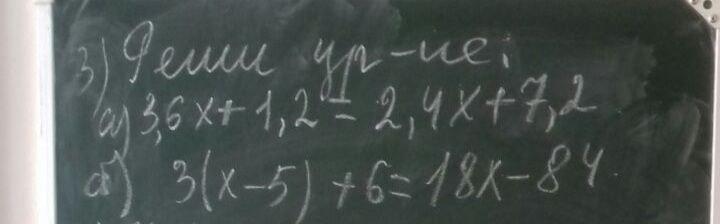 3) Реши ур-ие:
а) 3,6x+1,2=2,4x+7,2
б) 3(x-5)+6=18x-84.